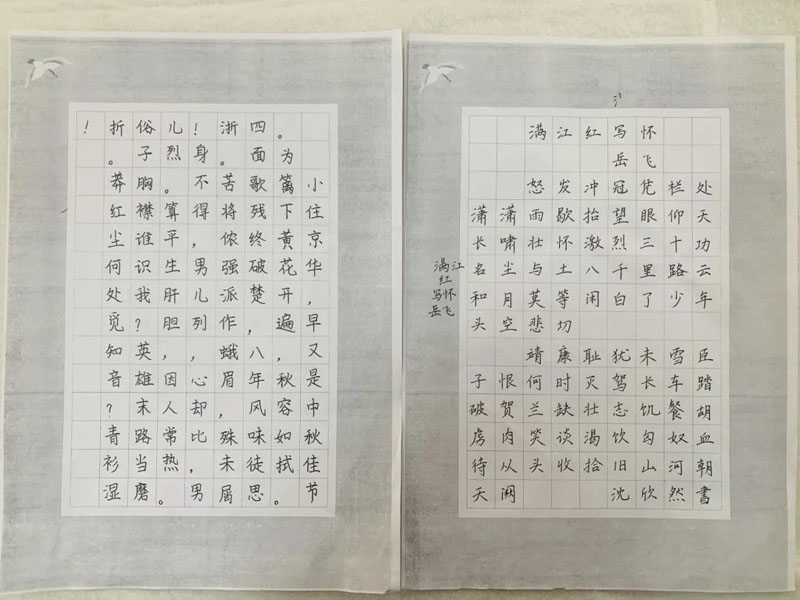 小住京华，早又是中秋佳节
。为篱下黄花开，遍秋容如拭。
四面歌残终破楚，八年风味徒思
浙。苦将侬强派作，蛾眉，殊未屑
！身不得，男儿列，心却比，男
儿烈。算平生肝胆，因人常热。
俗子胸襟谁识我？英雄末路当磨
折。莽红尘何处觅知音？青衫湿
！
氵
满江红写怀
岳飞
怒发冲冠凭栏处
潇潇雨歇抬望眼仰天
长啸壮怀激烈三十功
名尘与土八千里路云
和月莫等闲白了少年
头空悲切
靖康耻犹未雪臣
子恨何时灭驾长车踏
破贺兰缺壮志饥餐胡
虏肉笑谈渴饮匈奴血
待从头收拾旧山河朝
天阙 沈欣然書
满江
红
写怀
岳飞